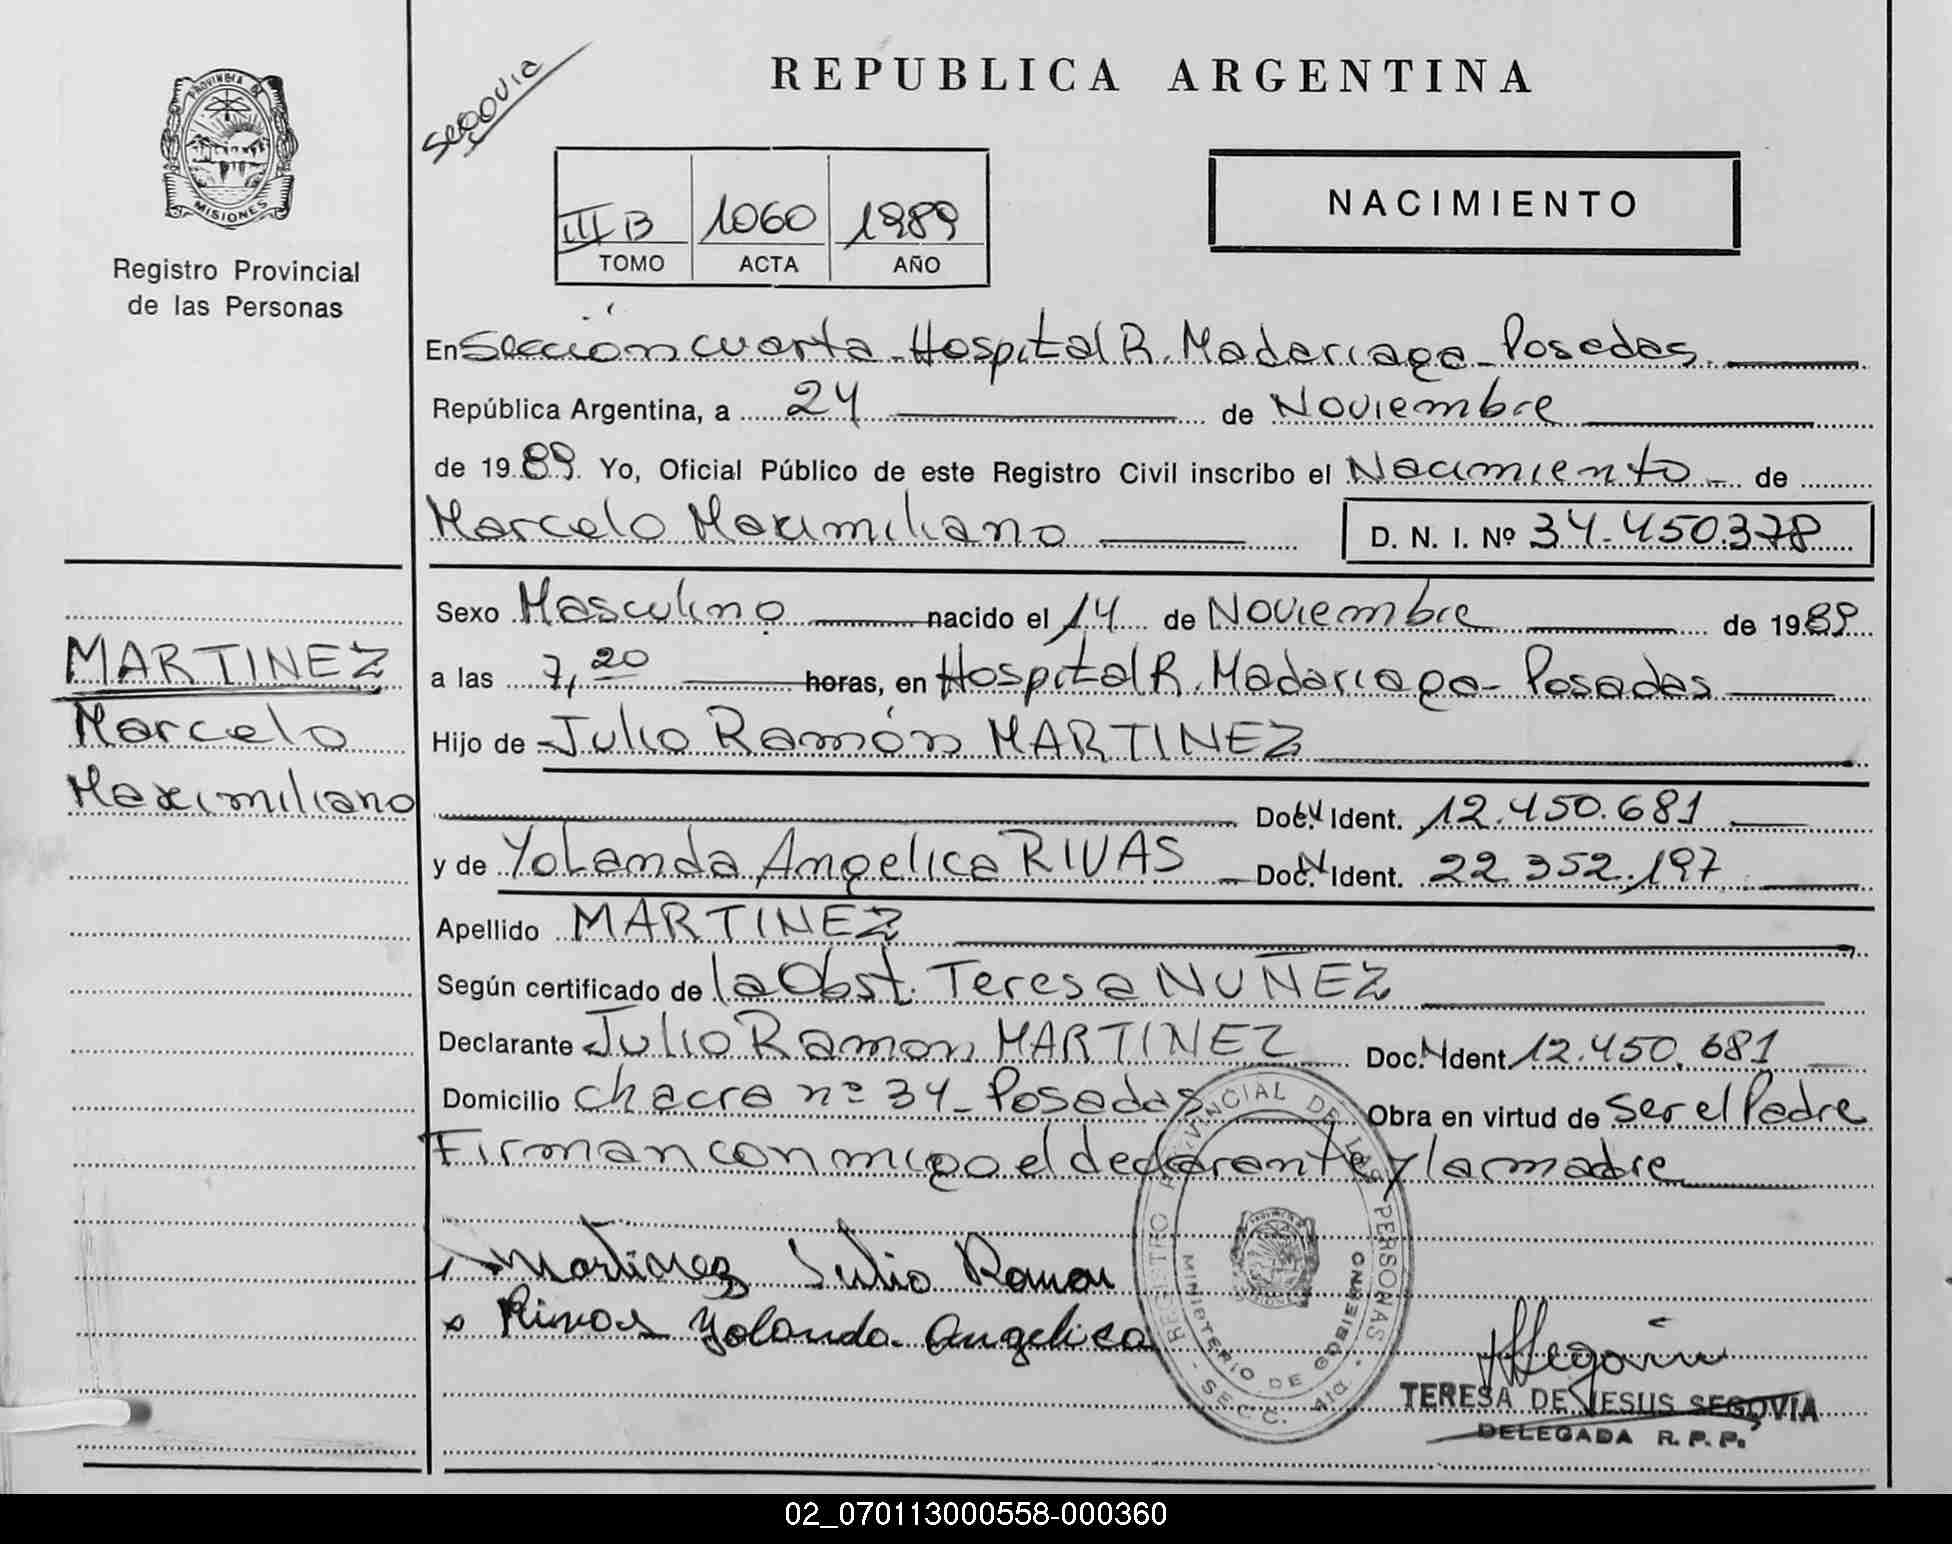 Segovia
REPUBLICA ARGENTINA
PROVINCIA DE
MISIONES
Registro Provincial
de las Personas
III B 1060 1989
TOMO ACTA AÑO
NACIMIENTO
En Sección cuarta - Hospital R. Madariaga - Posadas.
República Argentina, a 24 de Noviembre
de 1989. Yo, Oficial Público de este Registro Civil inscribo el Nacimiento - de
Marcelo Maximiliano
D. N. I. Nº 34.450.378
Sexo Masculino nacido el 14 de Noviembre de 1989
a las 7,20 horas, en Hospital R. Madariaga - Posadas
Hijo de Julio Ramón MARTINEZ
Doc. N Ident. 12.450.681
y de Yolanda Angelica RIVAS Doc. N Ident. 22.352.197
Apellido MARTINEZ
Según certificado de la Obst. Teresa NUÑEZ
Declarante Julio Ramon MARTINEZ Doc. N Ident. 12.450.681
Domicilio chacra nº 34 - Posadas Obra en virtud de ser el Padre
Firman conmigo el declarante y la madre
MARTINEZ
Marcelo
Maximiliano
Martinez Julio Ramon
Rivas Yolanda Angelica
REGISTRO PROVINCIAL DE LAS PERSONAS
MINISTERIO DE GOBIERNO
- SECC. 4ta. -
Segovia
TERESA DE JESUS SEGOVIA
DELEGADA R. P. P.
02_070113000558-000360